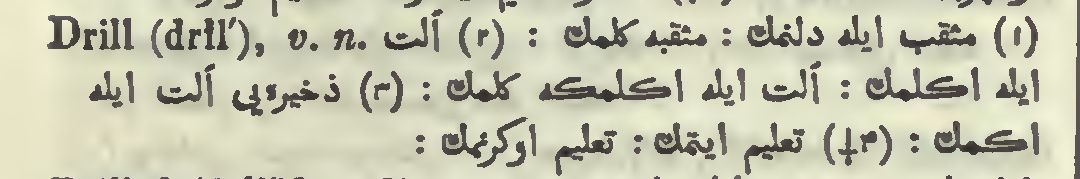 Drill (drĭl′), v. n. (۱) مثقب ایله دلنمك : مثقبه كلمك : (۲) آلت
ایله اكلمك : آلت ایله اكلمكه كلمك : (۳) ذخیره‌یی آلت ایله
اكمك : (†۳) تعلیم ایتمك : تعلیم اوكرنمك :